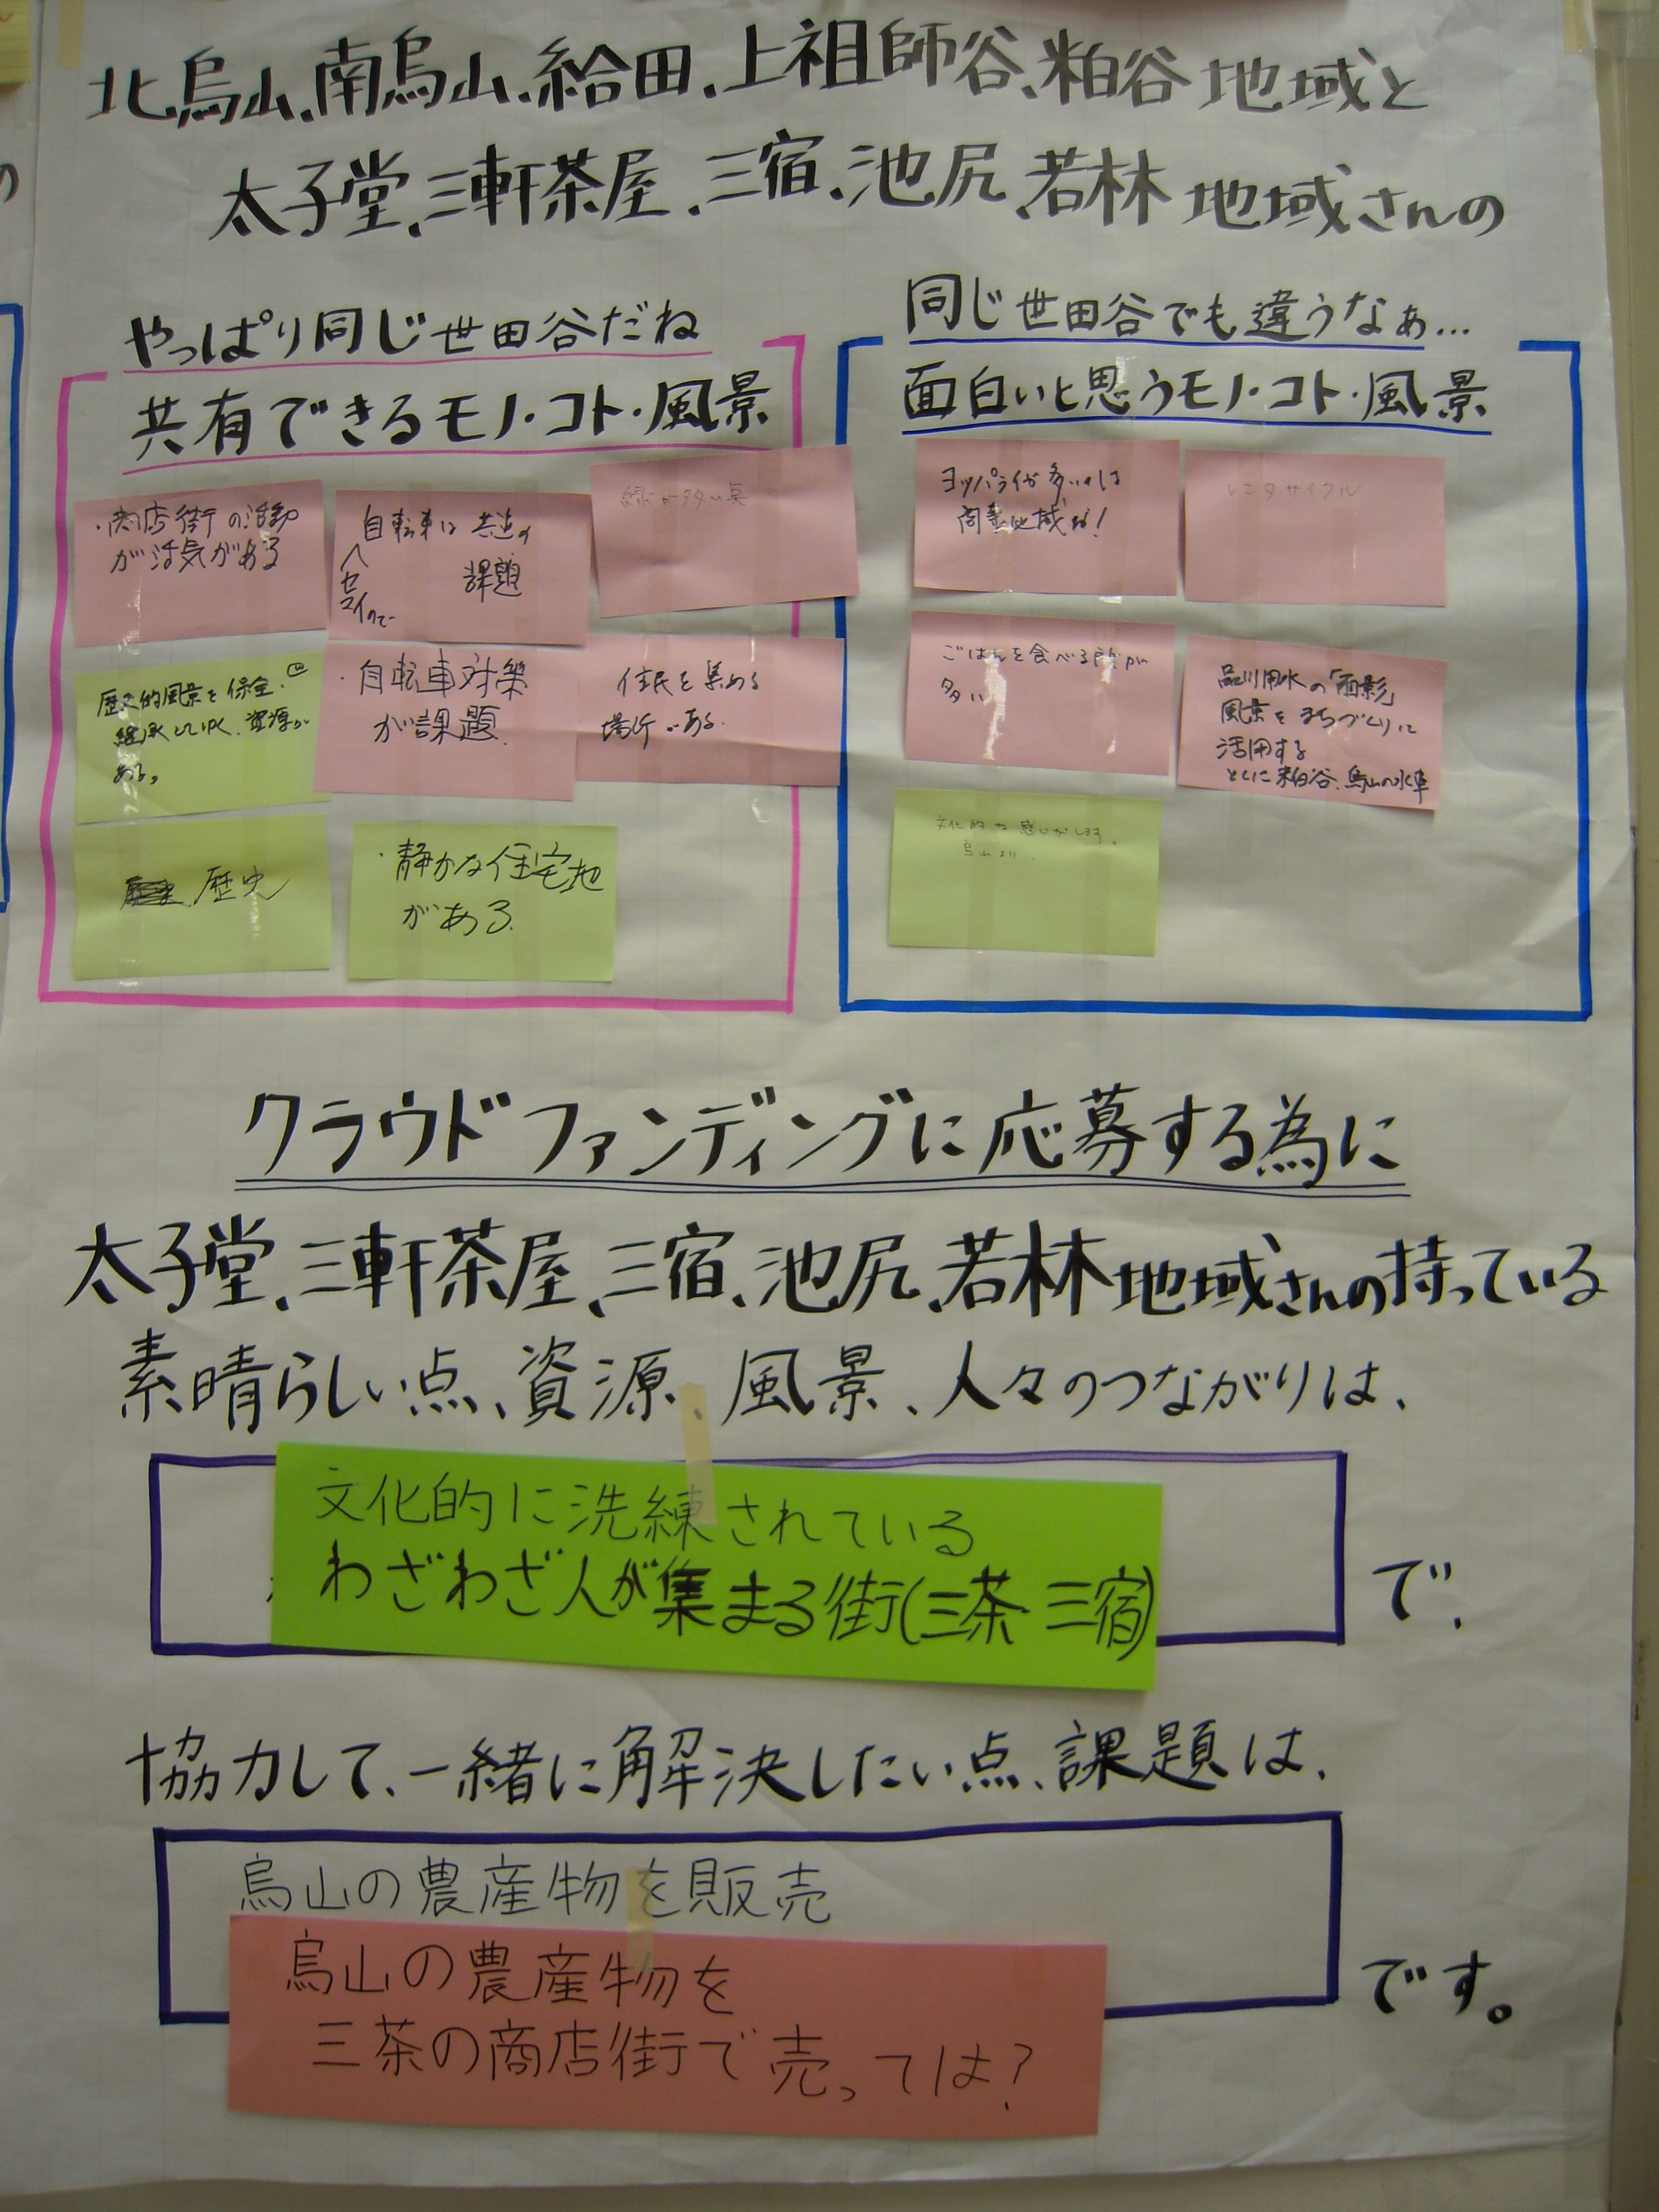 北烏山、南烏山、給田、上祖師谷、粕谷 地域と
太子堂、三軒茶屋、三宿、池尻、若林 地域さんの
やっぱり同じ世田谷だね
共有できるモノ・コト・風景
・商店街の活動
が活気がある
自転車は 共通の
課題
セマイので
緑が多い
歴史的風景を保全、
継承していく、資源が
ある。
・自転車対策
が課題
住民を集める
場所がある
歴史
・静かな住宅地
がある
同じ世田谷でも違うなぁ…
面白いと思うモノ・コト・風景
ヨッパライが多いのは
商業地域だ!
レンタサイクル
ごはんを食べる所が
多い
品川用水の「面影」
風景をまちづくりに
活用する
とくに粕谷、烏山の水車
文化的な感じがします。
烏山より…
クラウドファンディングに応募する為に
太子堂、三軒茶屋、三宿、池尻、若林 地域さんの持っている
素晴らしい点、資源、風景、人々のつながりは、
文化的に洗練されている
わざわざ人が集まる街(三茶 三宿)
で、
協力して、一緒に解決したい点、課題は、
烏山の農産物を販売
烏山の農産物を
三茶の商店街で売っては?
です。